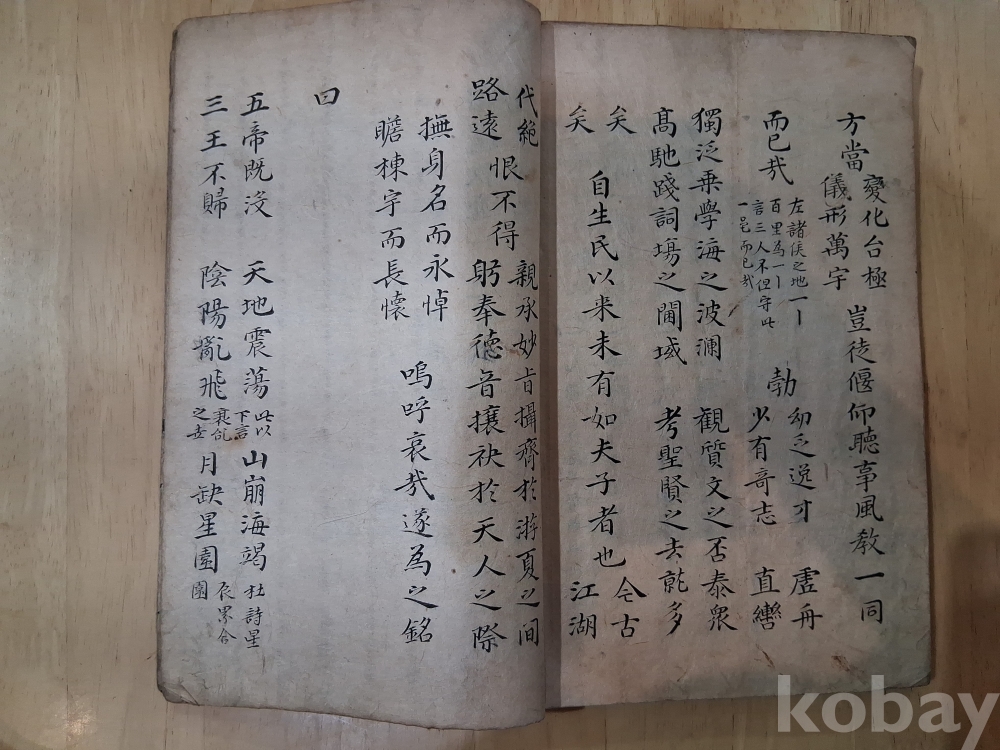 方當
變化台極
儀形萬宇
豈徒偃仰聽事風教一同
而已哉
左諸侯之地一一
百里為一一
言三人不但守此
一邑而已哉
勃
幼乏逸才 虛舟
少有奇志 直轡
獨泛乗學海之波瀾 觀質文之否泰衆
高馳踐詞場之閫域 考聖賢之去就多
矣
矣
自生民以来未有如夫子者也
仝古
江湖
代絕
路遠
恨不得
親承妙旨攝齊於游夏之间
躬奉德音攘袂於天人之際
撫身名而永悼
瞻棟宇而長懷
嗚呼哀哉遂為之銘
曰
五帝既没 天地震蕩
此以
下言
山崩海竭
杜詩星
三王不歸 陰陽亂飛
衰乱
之世
月缺星圍
辰累合
圍
kobay